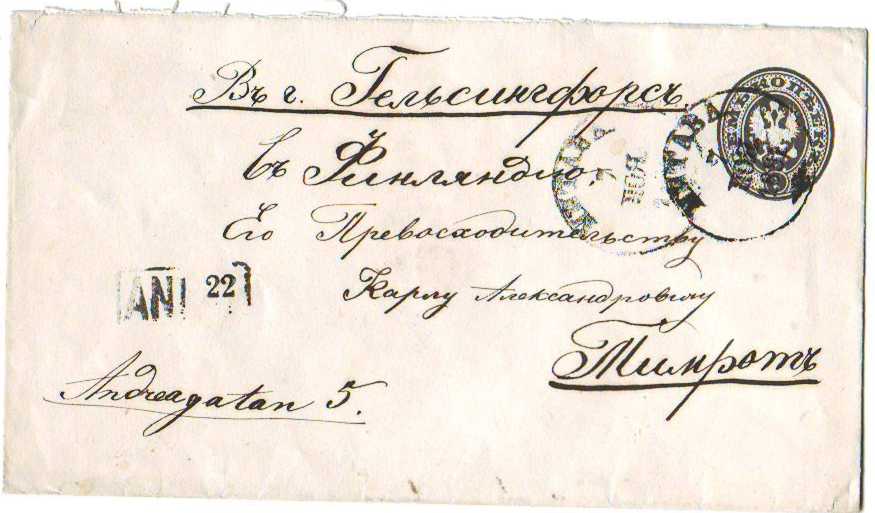 Въ г. Гельсингфорсъ
въ Финляндію.
Его Превосходительству
Карлу Александровичу
Тимротъ
Andreagatan 5.
AN 22
МИТАВА
7
НОЯ
МИТАВА
7